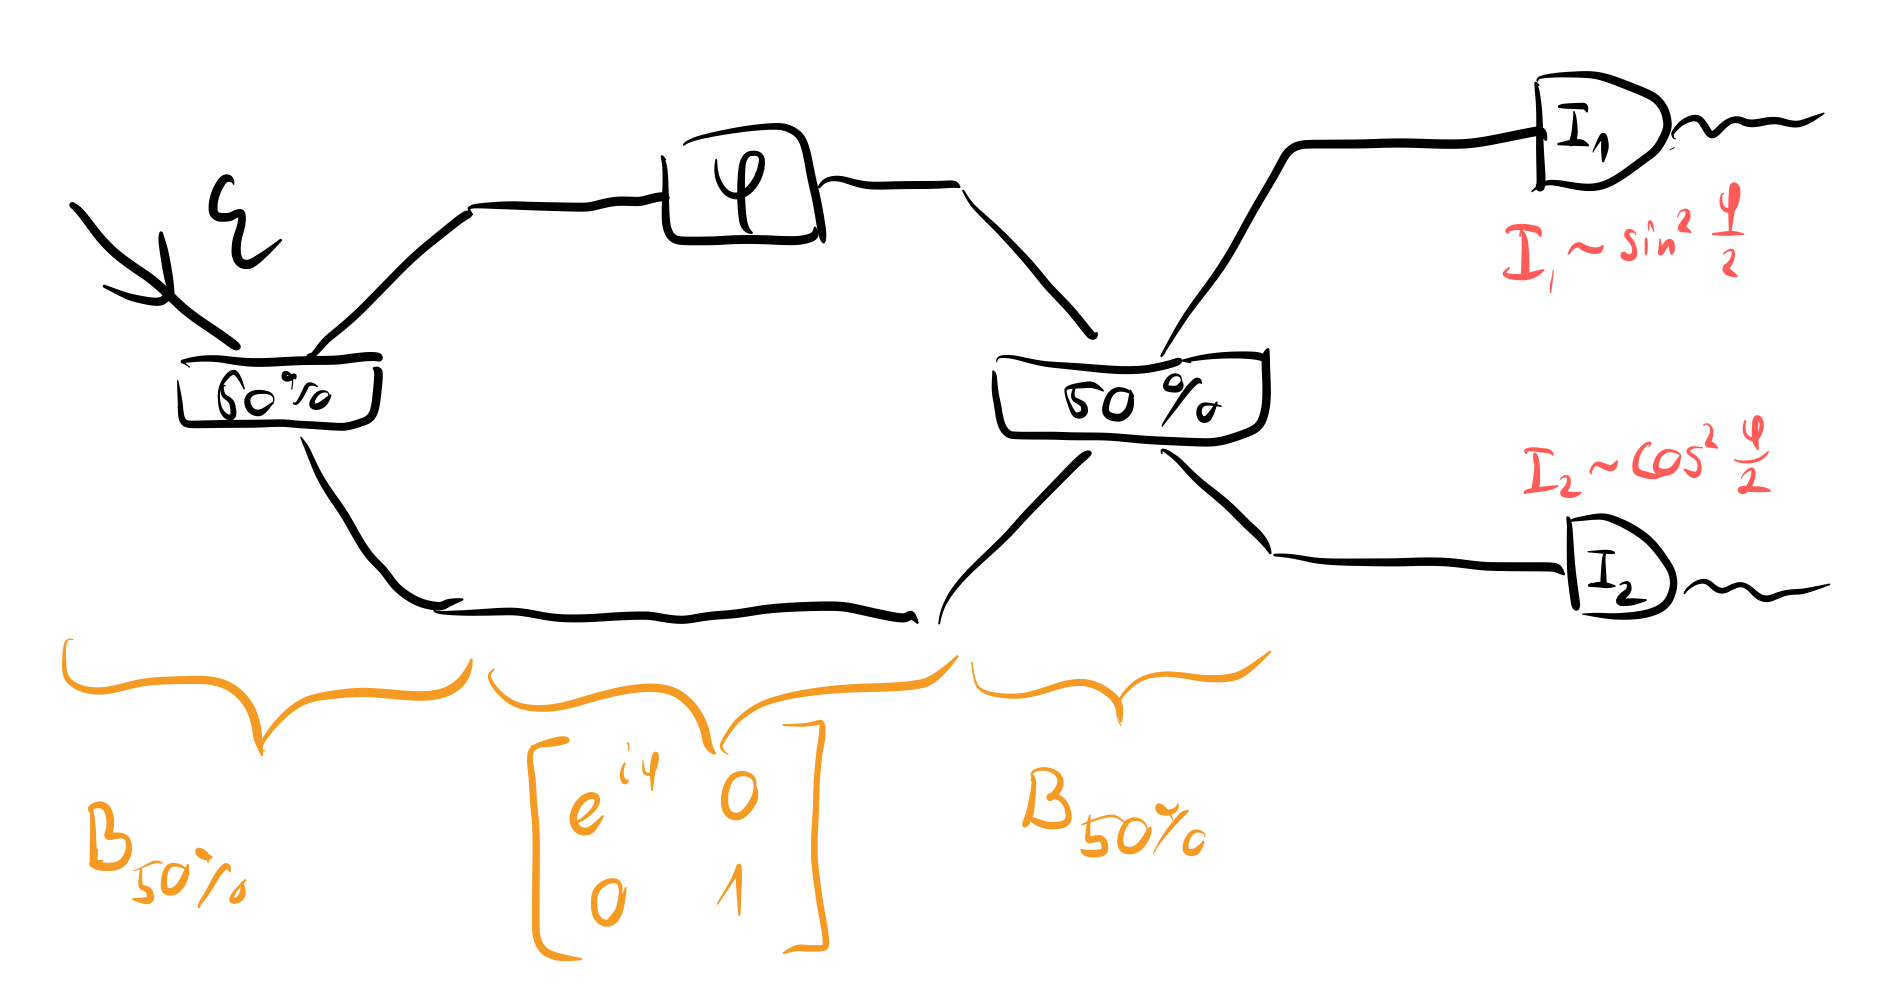 ε
φ
50%
50%
I₁
I₁ ~ sin² φ/2
I₂ ~ cos² φ/2
I₂
B₅₀%
[e^{iφ} 0
0 1]
B₅₀%